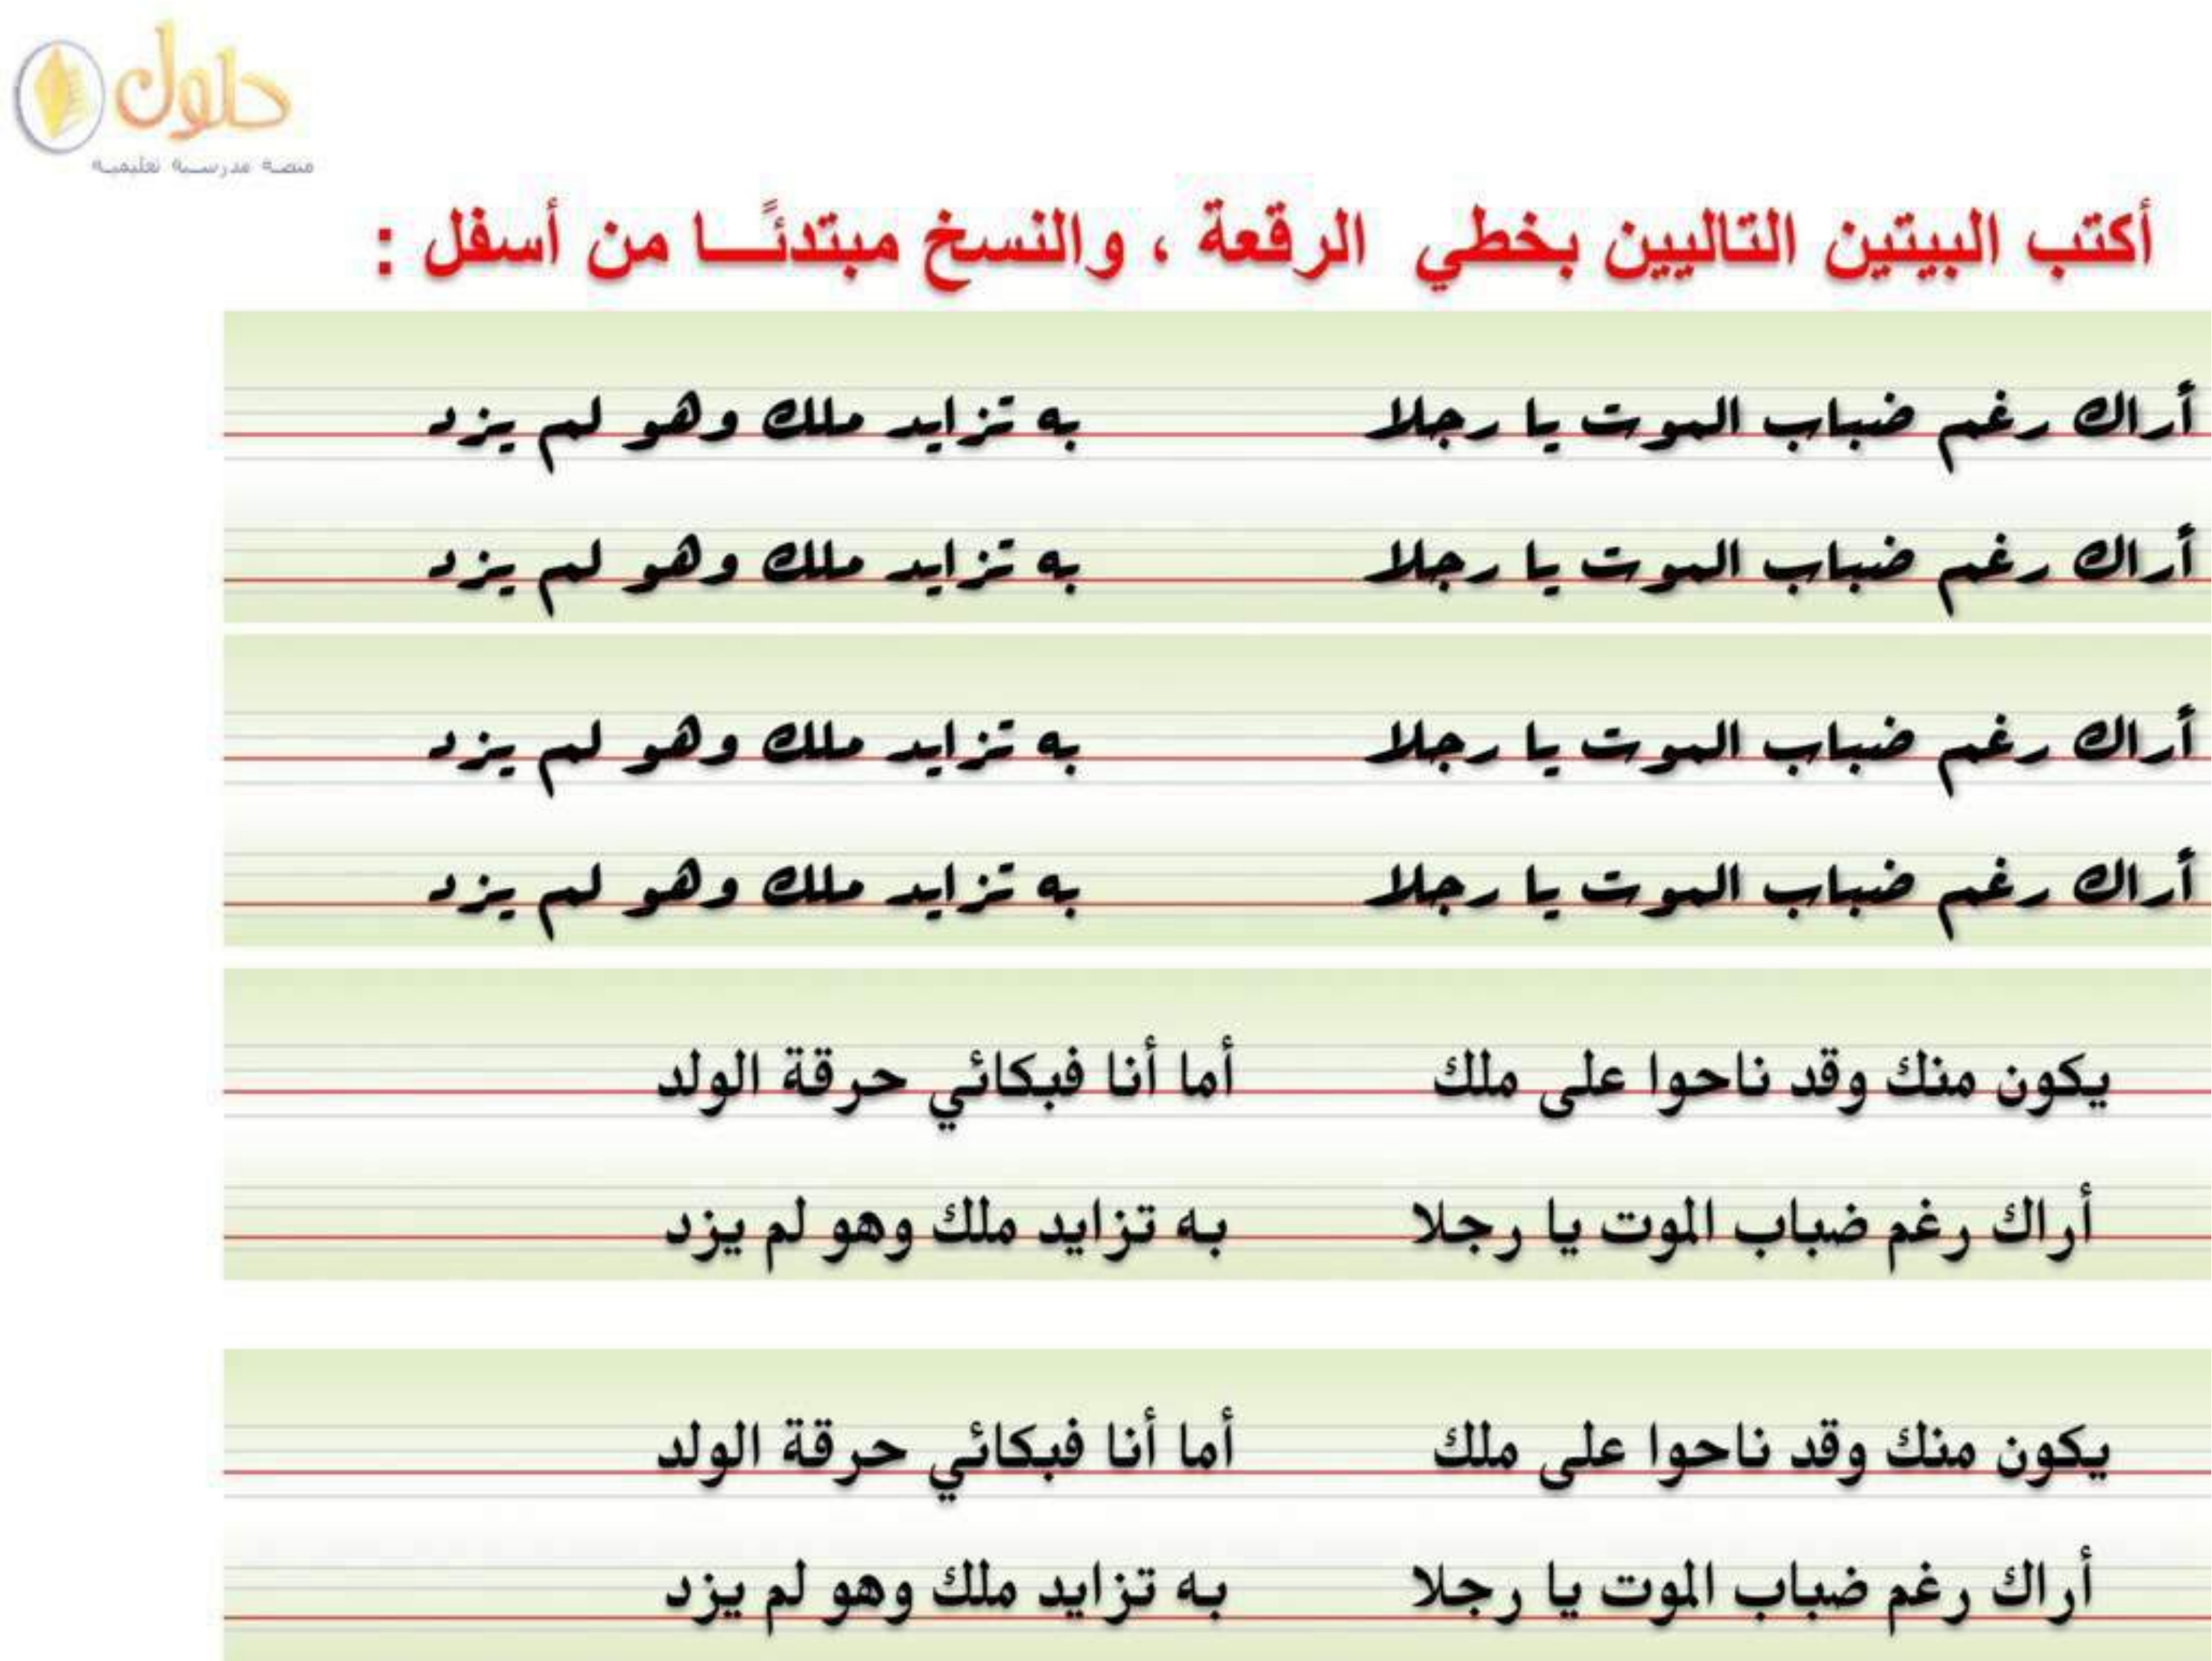 حلول
منصة مدرسية تعليمية
أكتب البيتين التاليين بخطي الرقعة ، والنسخ مبتدئـًـا من أسفل :
أراك رغم ضباب الموت يا رجلا به تزايد ملك وهو لم يزد
أراك رغم ضباب الموت يا رجلا به تزايد ملك وهو لم يزد
أراك رغم ضباب الموت يا رجلا به تزايد ملك وهو لم يزد
أراك رغم ضباب الموت يا رجلا به تزايد ملك وهو لم يزد
يكون منك وقد ناحوا على ملك أما أنا فبكائي حرقة الولد
أراك رغم ضباب الموت يا رجلا به تزايد ملك وهو لم يزد
يكون منك وقد ناحوا على ملك أما أنا فبكائي حرقة الولد
أراك رغم ضباب الموت يا رجلا به تزايد ملك وهو لم يزد